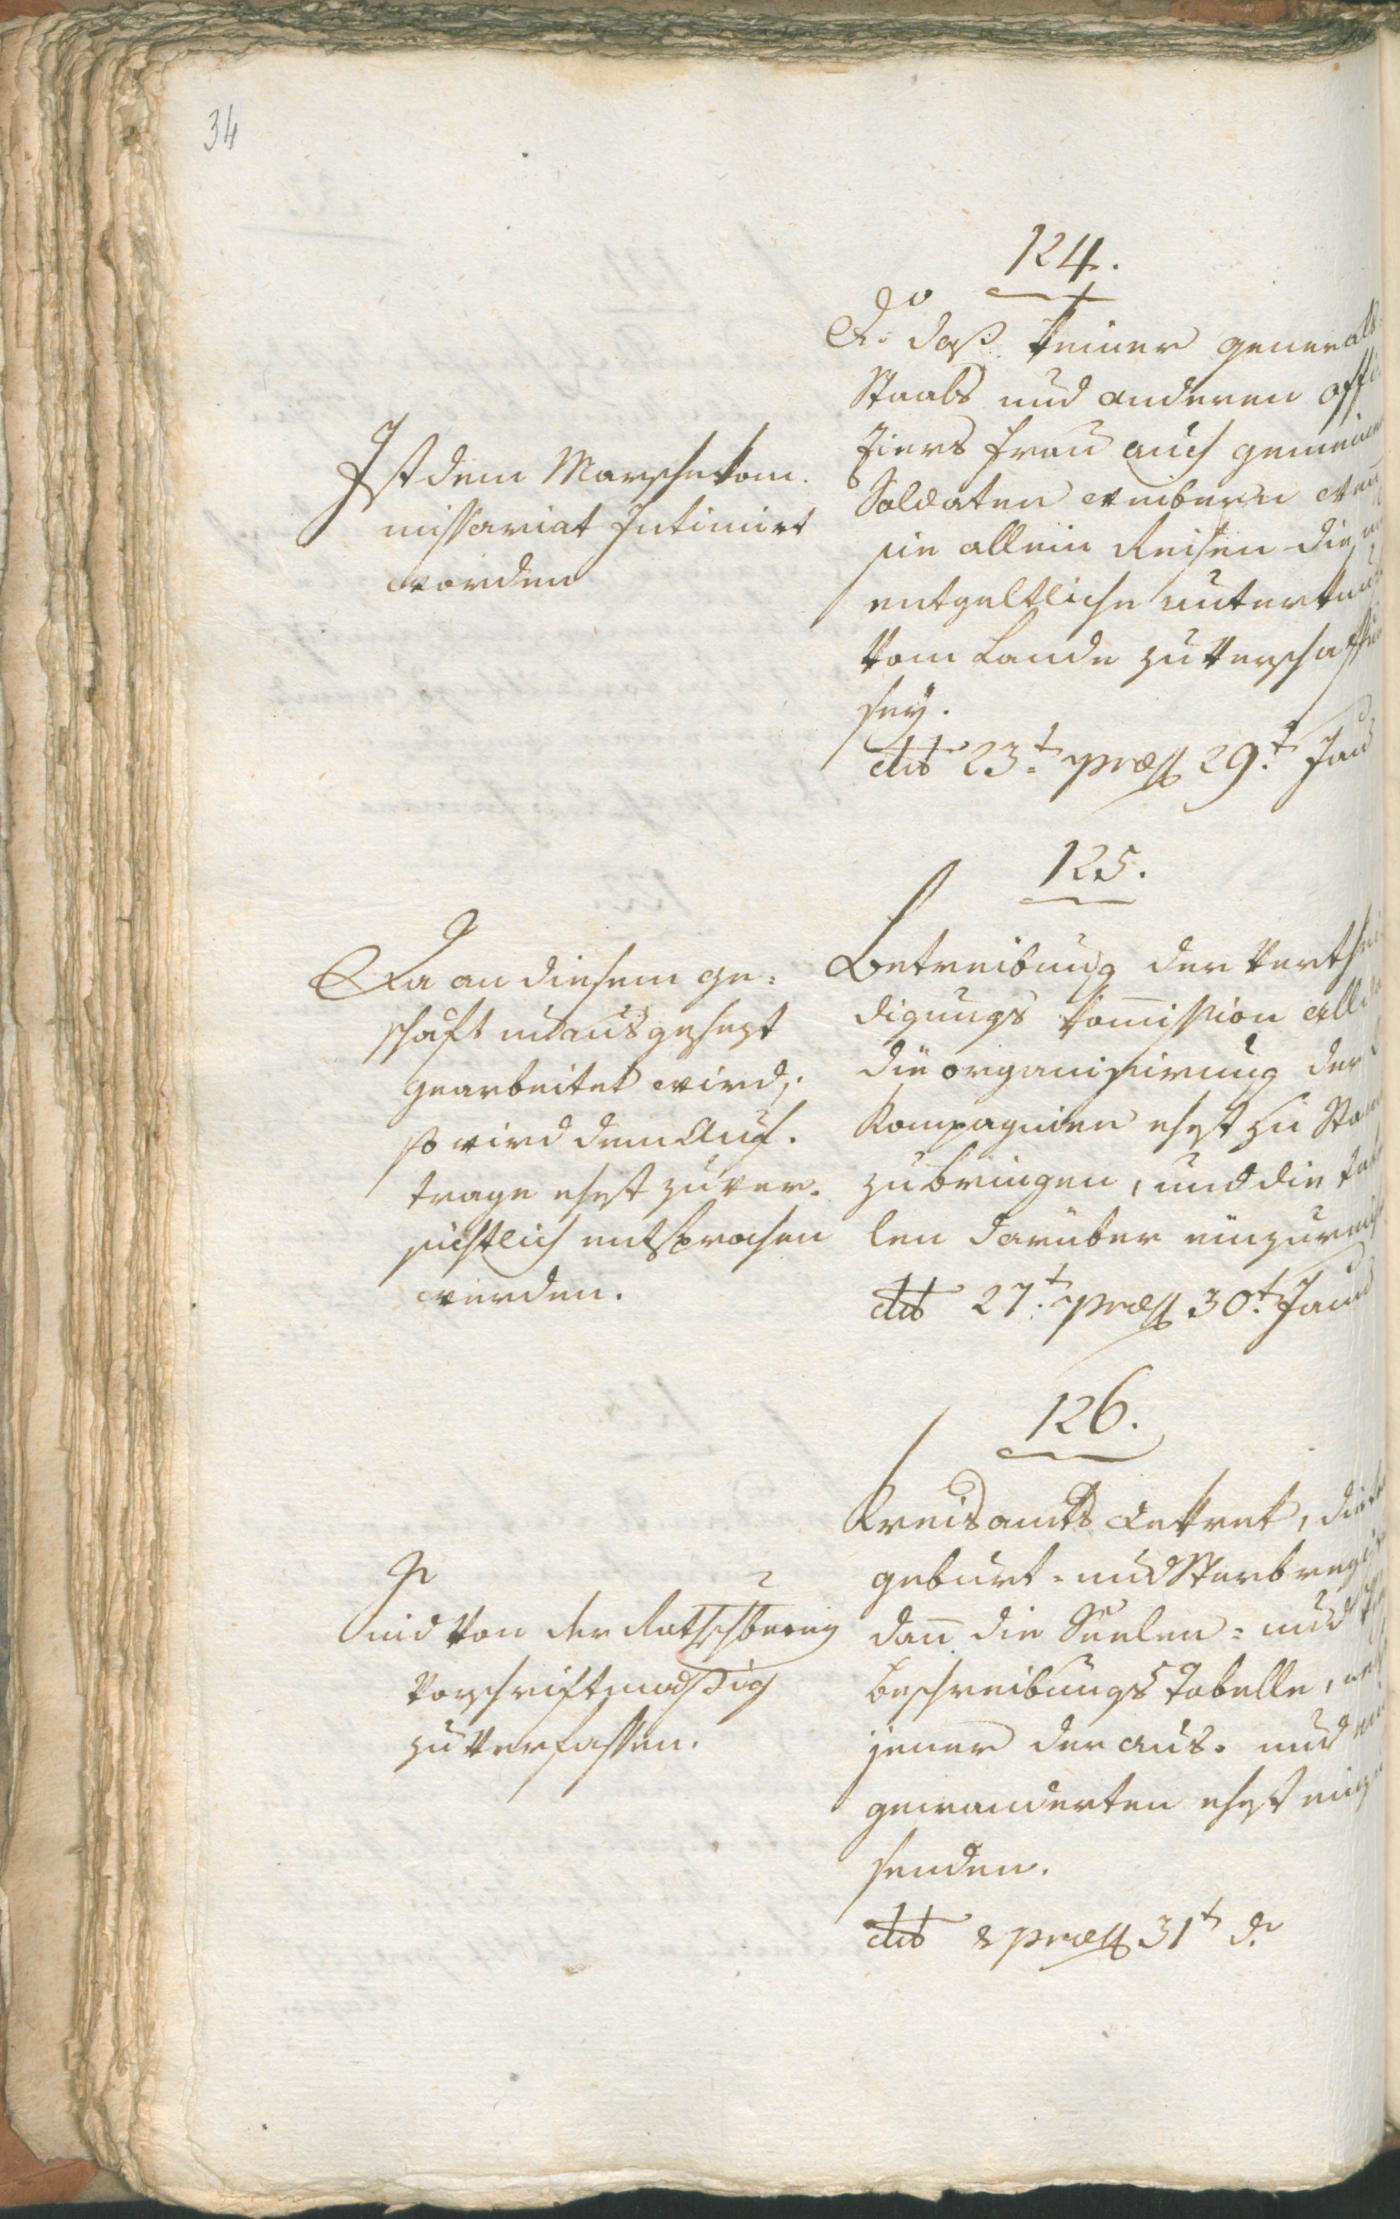 34
124.
Do daß keiner generals
Staabs und anderen offi
ziers frau auch gemeinen
Soldaten weibern wen
sie allein Reisen die un
entgeltliche unterkun
vom Lande zu verschaffen
sey.
dtō 23t. præs 29t. Jan
Ist dem Marschekom.
missariat Intimirt
worden
125.
Betreibung der Verthei
digungs kom̄ission alle
die organisirung der
Kompagnien ehest zu Sta
zubringen, und die tabel
len darüber einzureich
dtō 27t. præs 30t. Jan
Da an diesem ge:
schäft unausgesezt
gearbeitet wird,
so wird dem Auf.
trage ehest zuver.
sichtlich entsprochen
werden.
126.
Kreisamts Dekret, die
geburt- und Sterbregi
dan̄ die Seelen- und
beschreibungs tabelle,
jener der aus- und ein
gewanderten ehest einzu
senden.
dtō & præs 31t do
Sind von der
vorschriftmässig
zu verfassen.